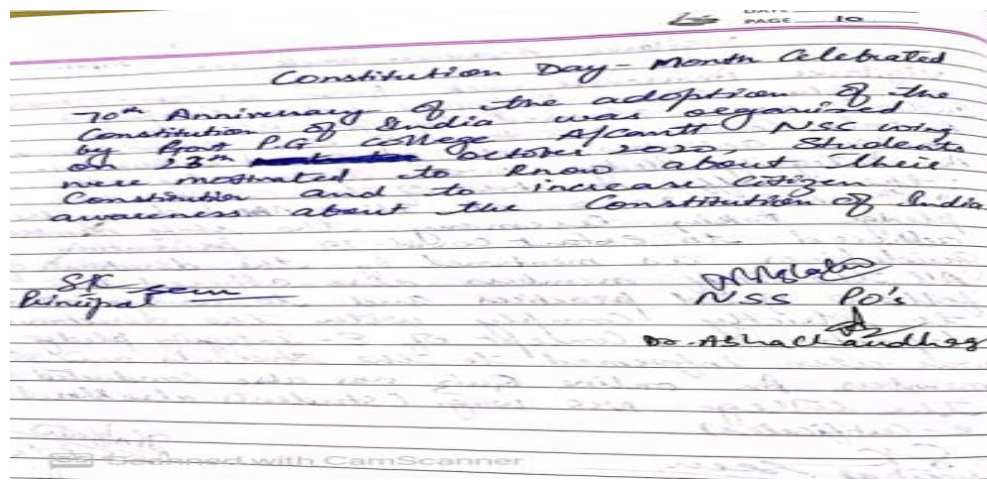 DATE
PAGE 10
Constitution Day - Month Celebrated
70th Anniversary of the adoption of the
Constitution of India was organised
by Govt P.G College A/Cantt NSS wing
on 23th October 2020, Students
were motivated to know about their
Constitution and to increase Citizen
awareness about the Constitution of India
Principal
NSS PO's
Dr. Asha Chaudhary
Scanned with CamScanner